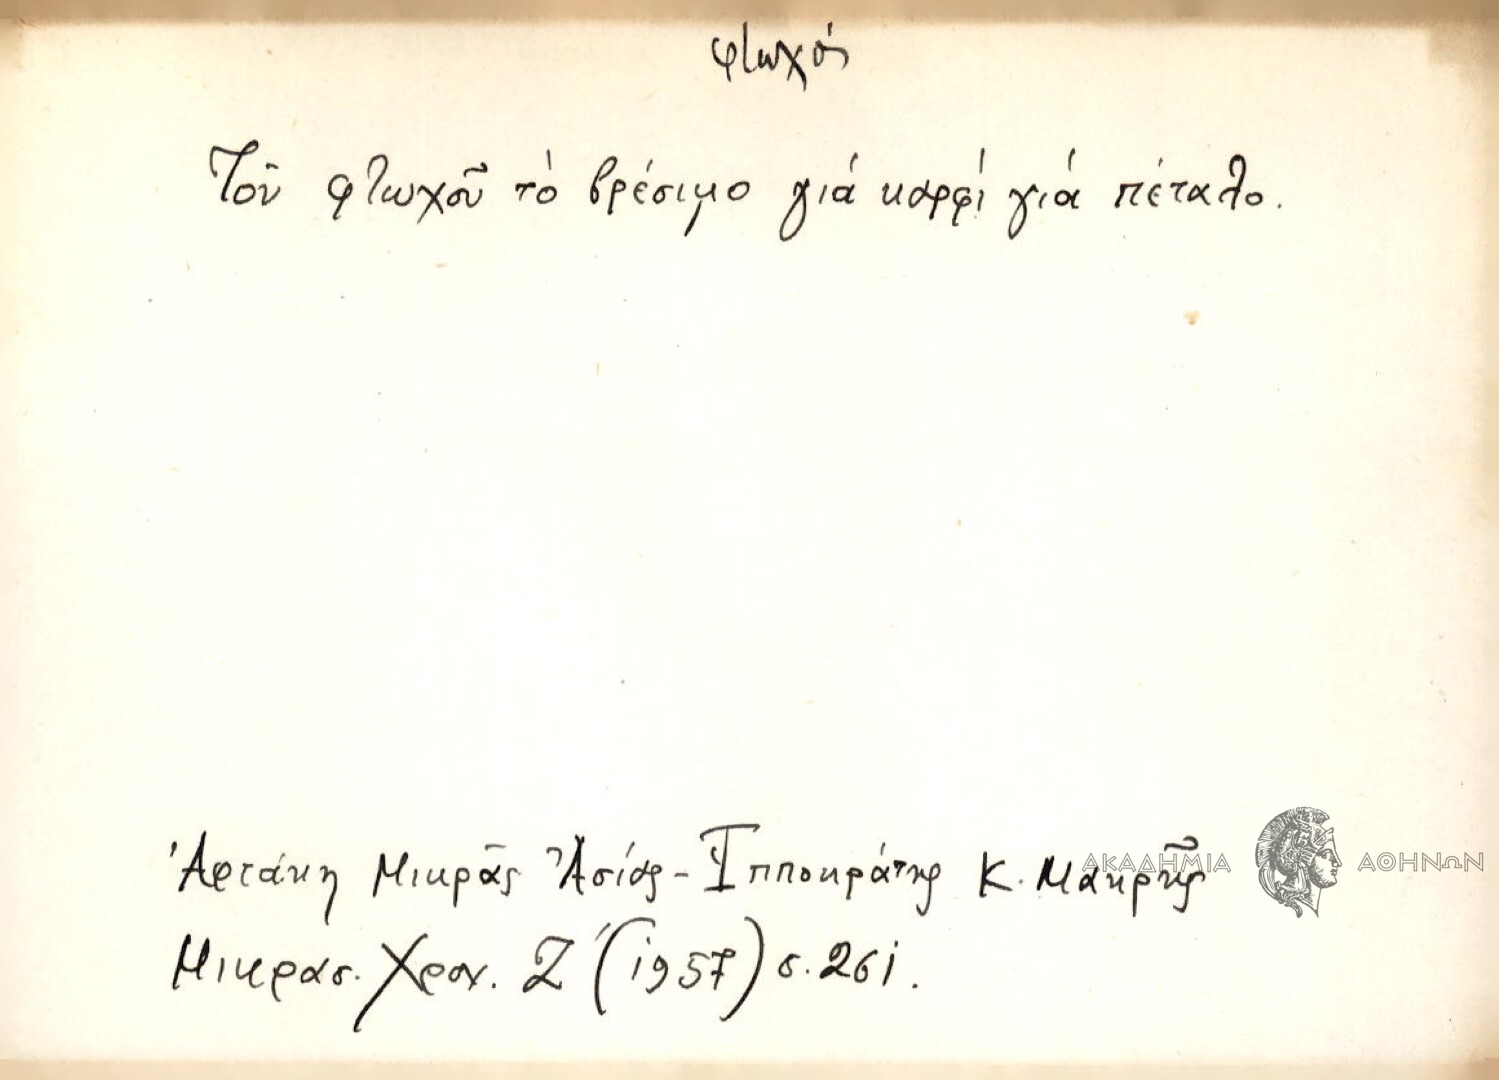 φτωχός
Τοῦ φτωχοῦ τὸ βρέσιμο γιά καρφί γιά πέταλο.
Ἀρτάκη Μικρᾶς Ἀσίας - Ἱπποκράτης Κ. Μακρῆς
ΑΚΑΔΗΜΙΑ ΑΘΗΝΩΝ
Μικρασ. Χρον. Ζ΄ (1957) σ. 261.